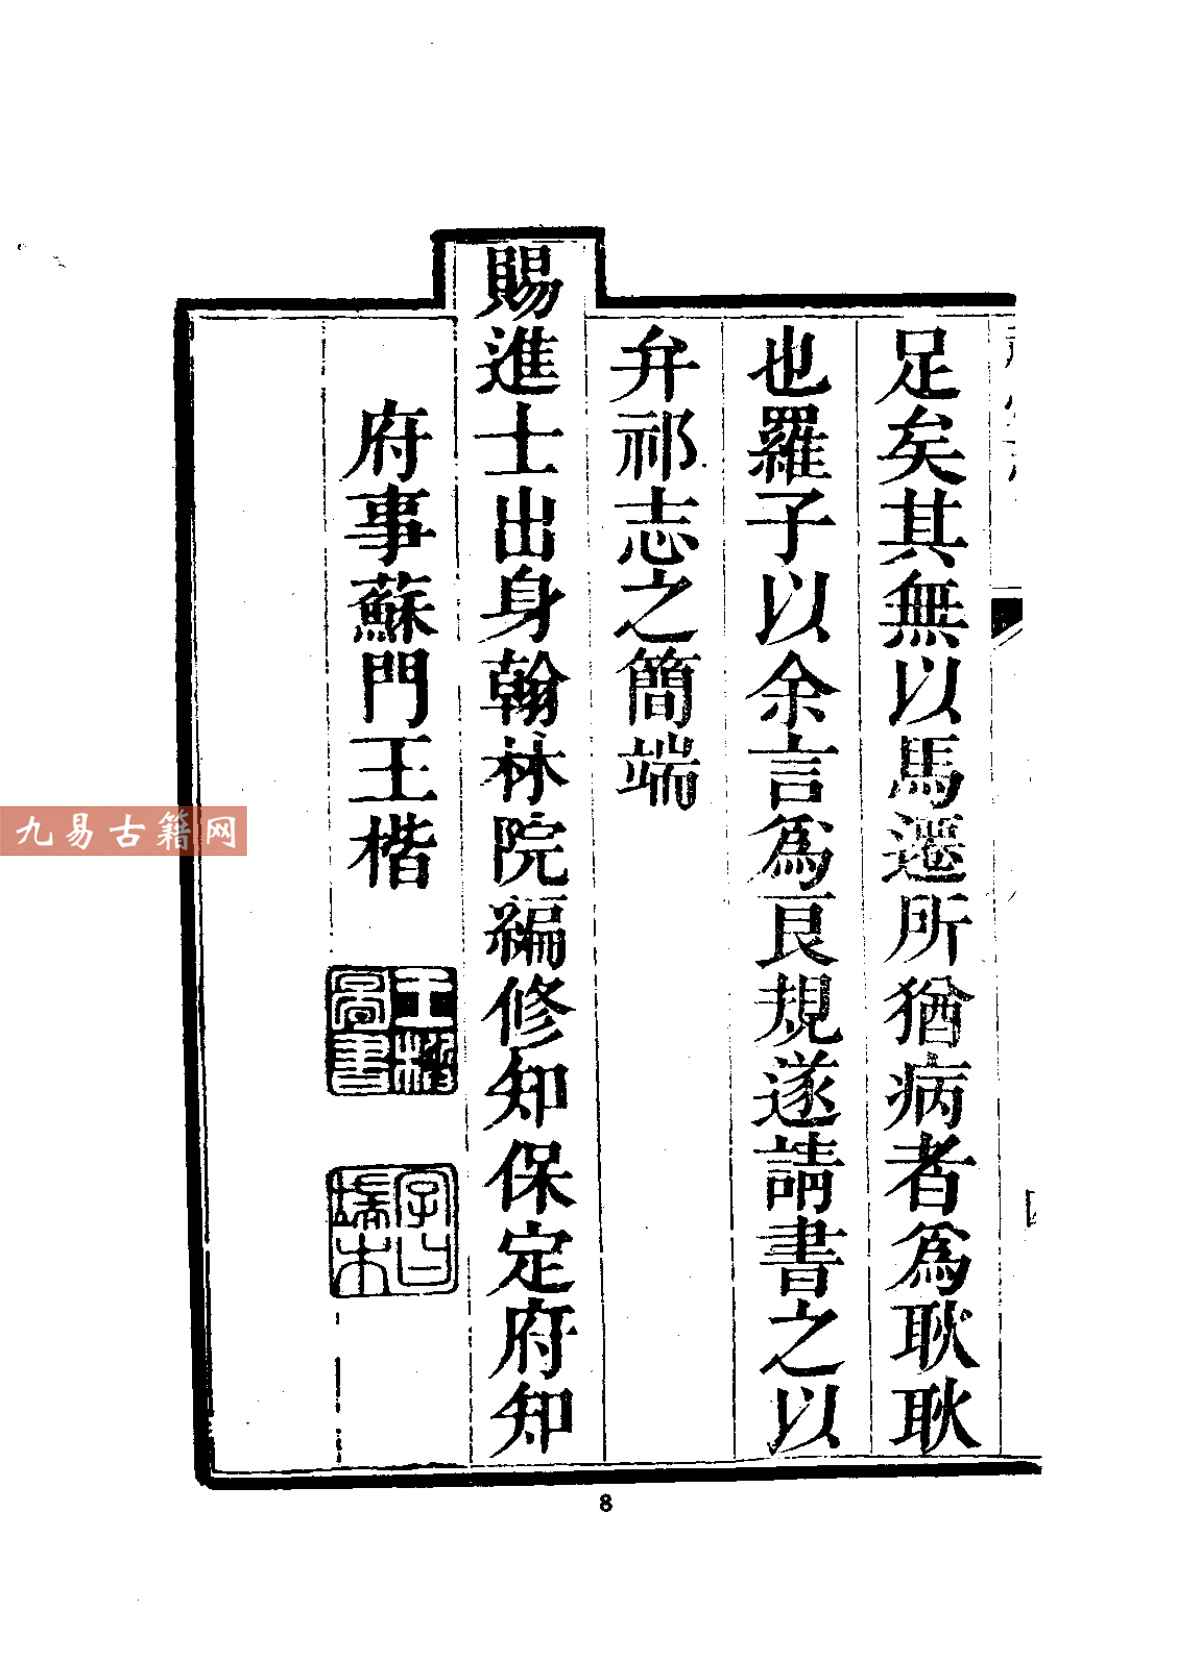 足矣其無以馬遷所猶病者爲耿耿
也羅子以余言爲良規遂請書之以
弁祁志之簡端
賜進士出身翰林院編修知保定府知
府事蘇門王楷
王楷圖書
字曰端木
九易古籍网
8